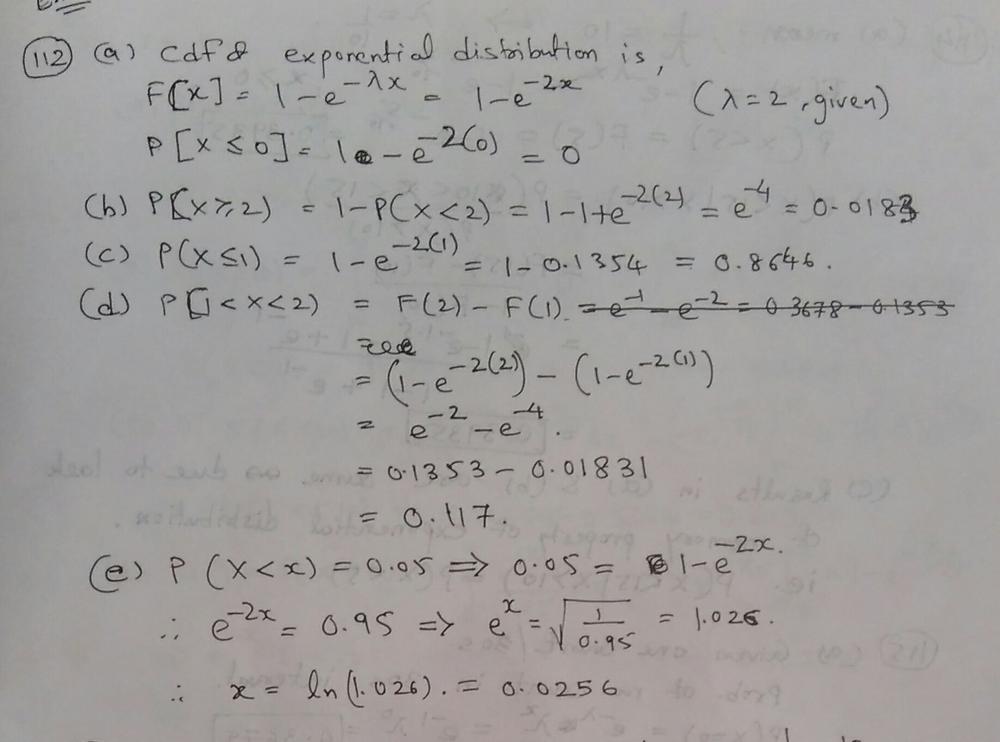 (112) (a) Cdf & exponential distribution is,
F[x] = 1-e^{-λx} = 1-e^{-2x} (λ=2, given)
P[X ≤ 0] = 1 - e^{-2(0)} = 0
(b) P[X ≥ 2) = 1-P(X < 2) = 1-1+e^{-2(2)} = e^{-4} = 0.0183
(c) P(X ≤ 1) = 1-e^{-2(1)} = 1-0.1354 = 0.8646.
(d) P[1 < X < 2) = F(2) - F(1) = e^{-1} - e^{-2} = 0.3678-0.1353
= (1-e^{-2(2)}) - (1-e^{-2(1)})
= e^{-2} - e^{-4}.
= 0.1353 - 0.01831
= 0.117.
(e) P (X < x) = 0.05 ⇒ 0.05 = 1-e^{-2x}.
∴ e^{-2x} = 0.95 ⇒ e^{x} = √(1/0.95) = 1.026.
∴ x = ln(1.026). = 0.0256